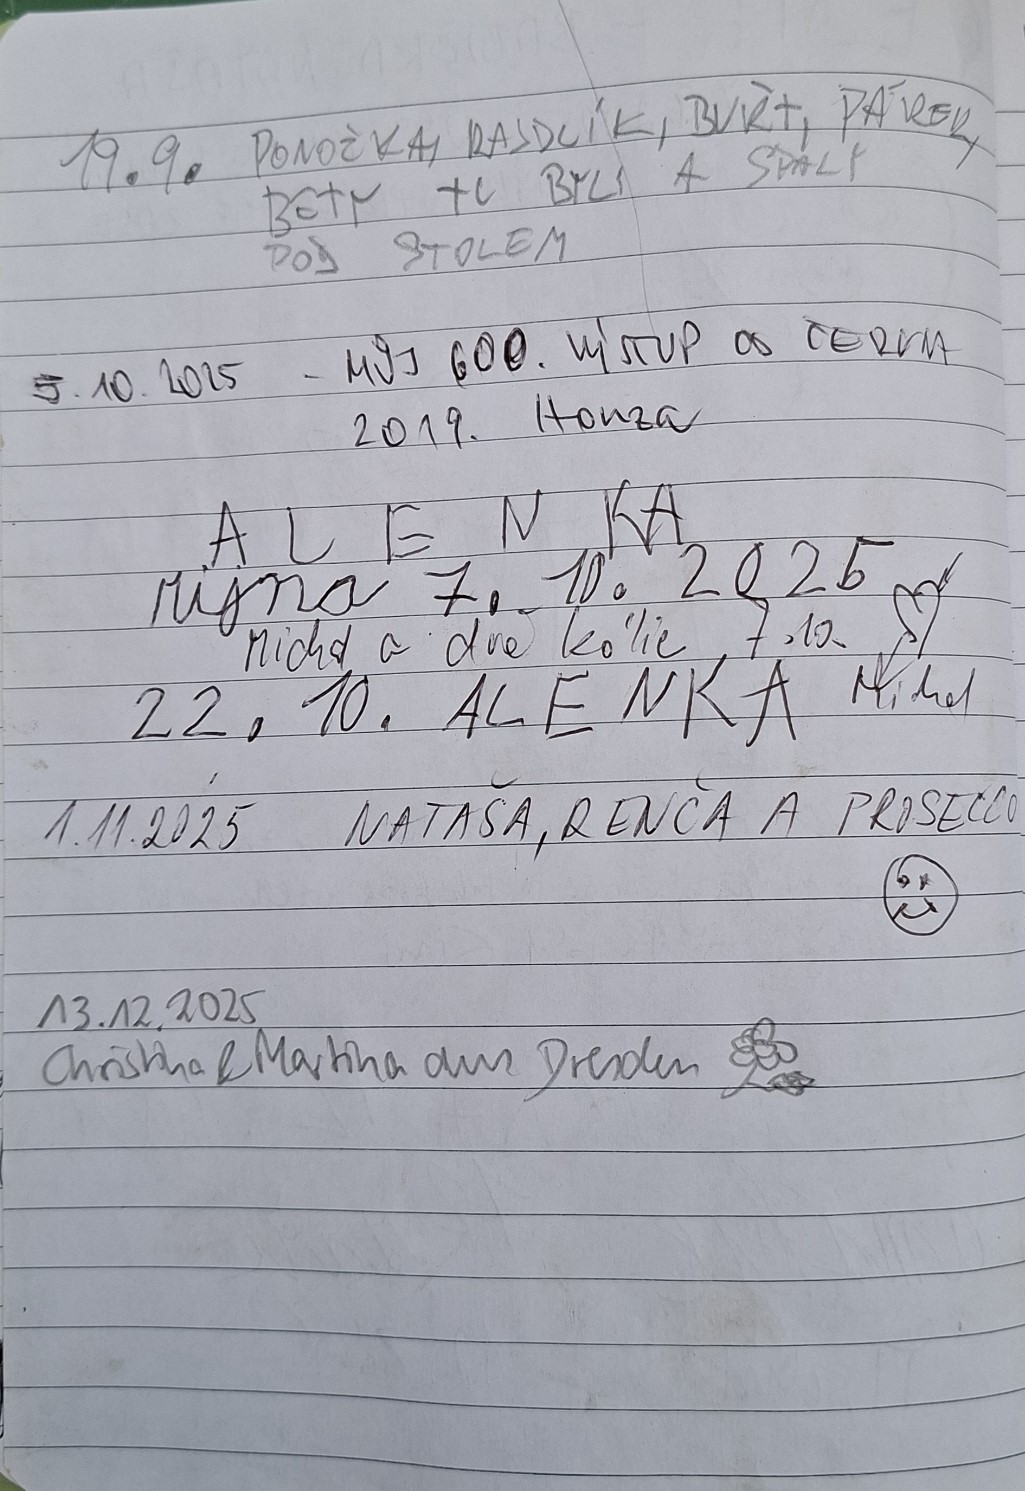 19.9. PONOŽKA, RAJDLÍK, BUŘT, PÁREK,
BETY TU BYLI A SPALI
POD STOLEM
5.10.2025 - MŮJ 600. VÝSTUP OD ČERVNA
2019. Honza
ALENKA
října 7. 10. 2025
Michal a dvě kólie 7.10.
22. 10. ALENKA Michal
1.11.2025 NATAŠA, RENČA A PROSECCO
13.12.2025
Christina & Martina aus Dresden